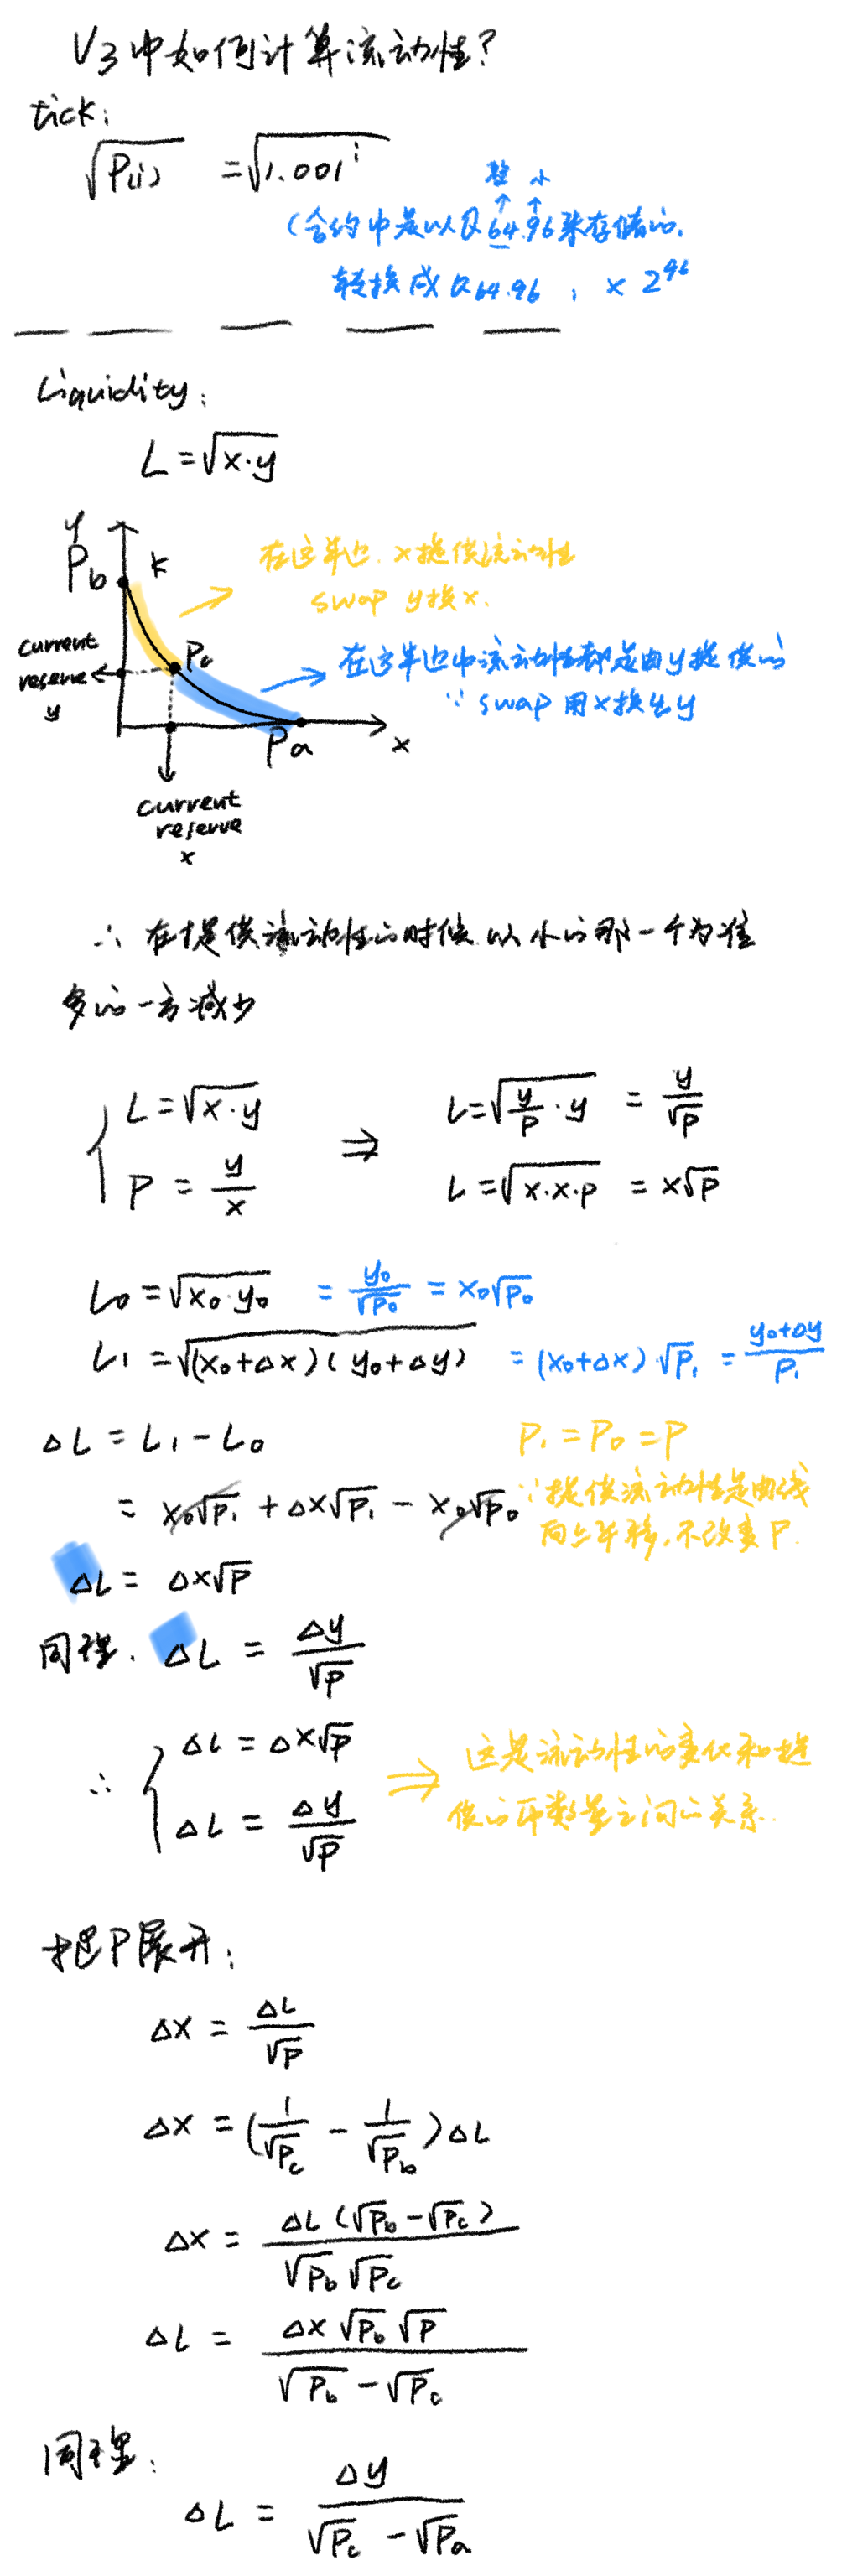 V3中如何计算流动性?
tick:
√P(i) = √1.001^i
整 小
↑ ↑
(合约中是以Q64.96来存储的,
转换成Q64.96, × 2^96
Liquidity:
L = √x·y
y
Pb
k
在这半边. x提供流动性
swap y换x.
Pc
current
reserve
y
在这半边中流动性都是由y提供的
∵ swap 用x换出y
Pa
x
current
reserve
x
∴ 在提供流动性的时候. 以小的那一个为准
多的一方减少
L = √x·y ⇒ L = √(y/P · y) = y/√P
P = y/x L = √x·x·P = x√P
L0 = √x0·y0 = y0/√P0 = x0√P0
L1 = √(x0+Δx)(y0+Δy) = (x0+Δx)·√P1 = (y0+Δy)/P1
ΔL = L1 - L0
P1 = P0 = P
= x0√P1 + Δx√P1 - x0√P0
∵提供流动性是曲线
向上平移,不改变P.
ΔL = Δx√P
同理. ΔL = Δy/√P
∴ ΔL = Δx√P
ΔL = Δy/√P
⇒ 这是流动性的变化和提
供的币数量之间的关系.
把P展开:
Δx = ΔL/√P
Δx = (1/√Pc - 1/√Pb)ΔL
Δx = ΔL(√Pb-√Pc)/√Pb√Pc
ΔL = Δx√Pb√P/√Pb-√Pc
同理:
ΔL = Δy/√Pc-√Pa